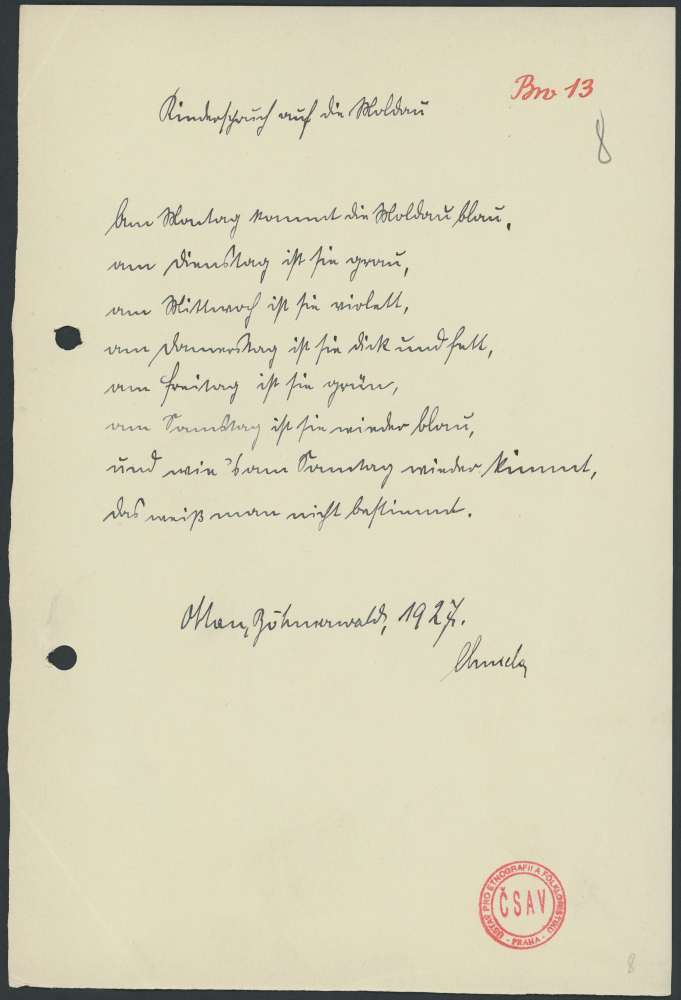 Bro 13
8
Kinderspruch auf die Moldau
Am Montag kommt die Moldau blau,
am Dienstag ist sie grau,
am Mittwoch ist sie violett,
am Donnerstag ist sie dick und fett,
am Freitag ist sie grün,
am Samstag ist sie wieder blau,
und wie's am Sonntag wieder kimmt,
das weiß man nicht bestimmt.
Böhmerwald, 1927.
ÚSTAV PRO ETNOGRAFII A FOLKLORISTIKU
ČSAV
- PRAHA -
8